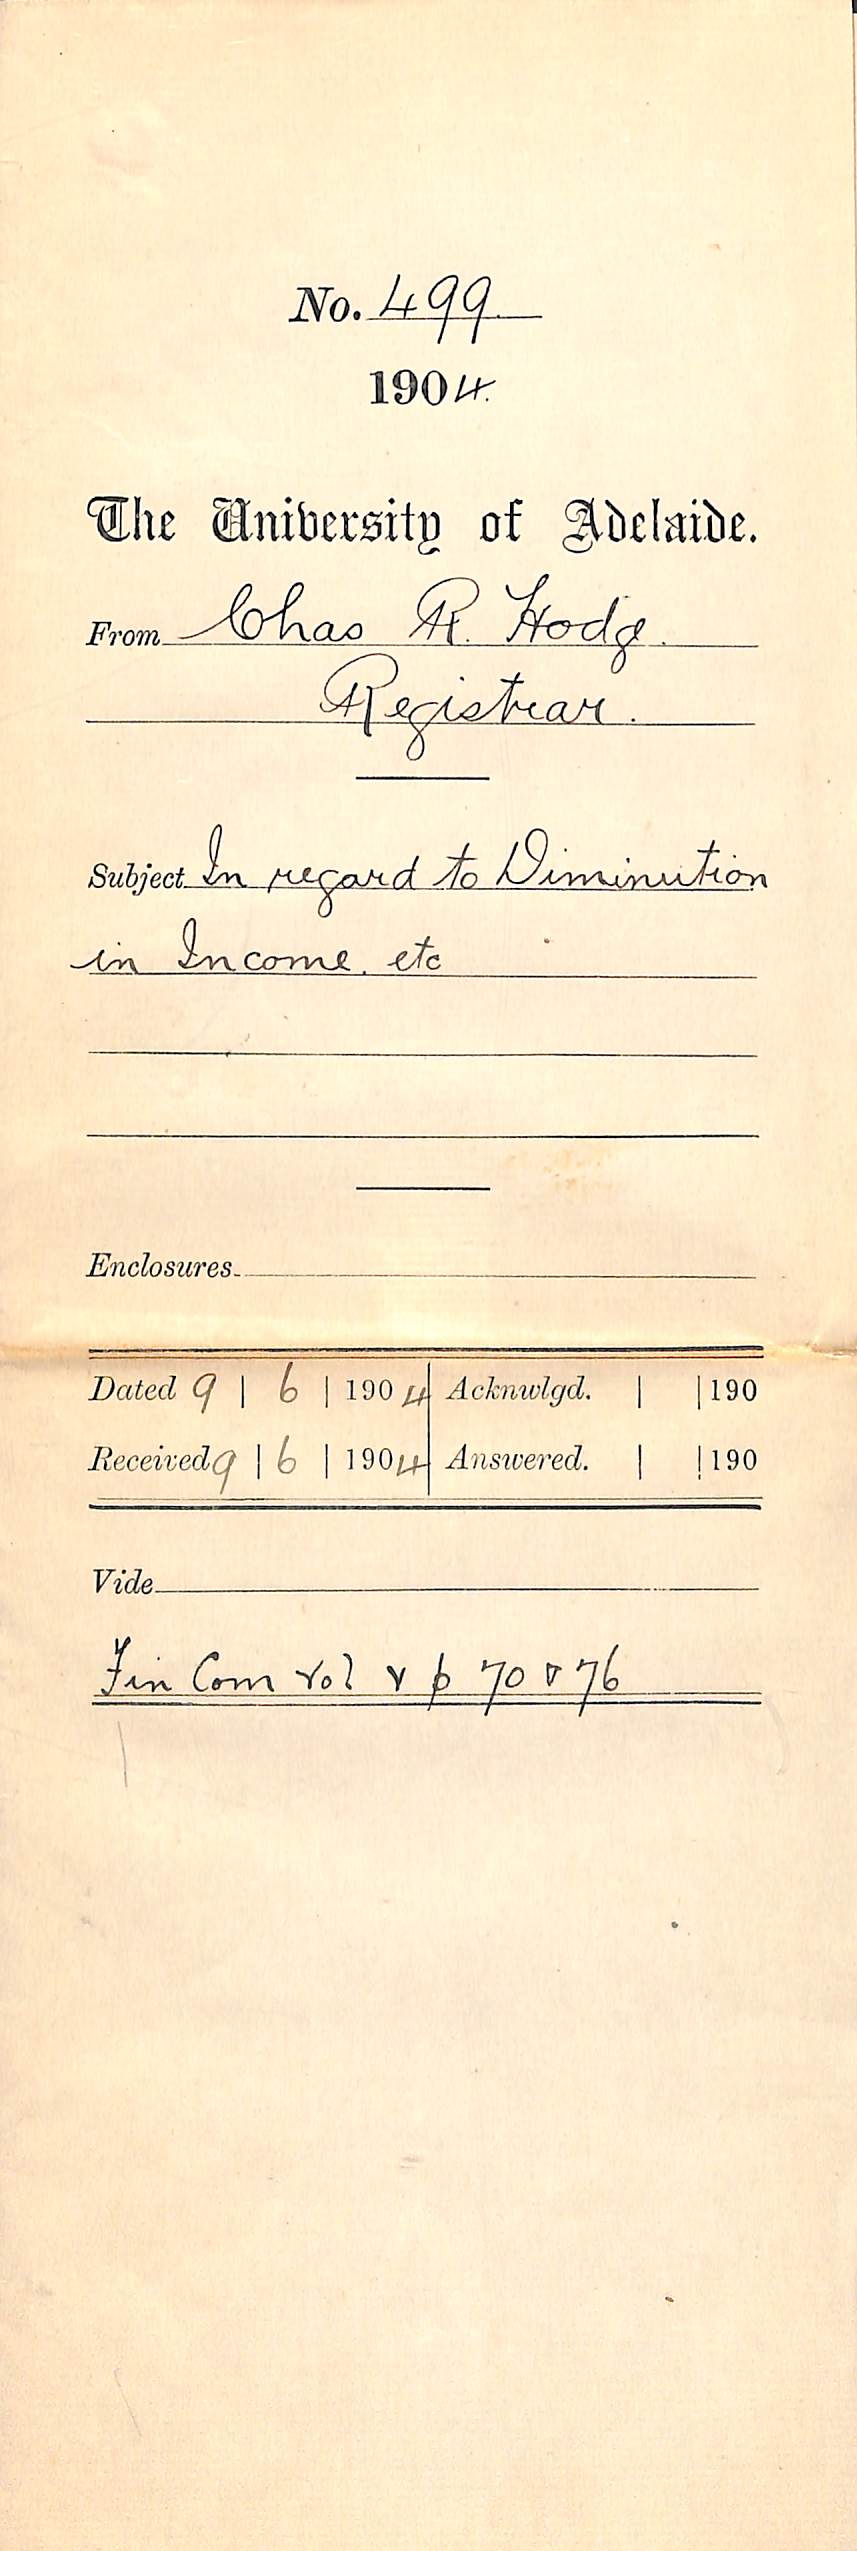 No. 499.
1904.
The University of Adelaide.
From Chas R. Hodge.
Registrar.
Subject In regard to Diminution
in Income. etc
Enclosures
Dated 9 | 6 | 1904 Acknwlgd. | | 190
Received 9 | 6 | 1904 Answered. | | 190
Vide
Fin Com Vol v p 70 & 76